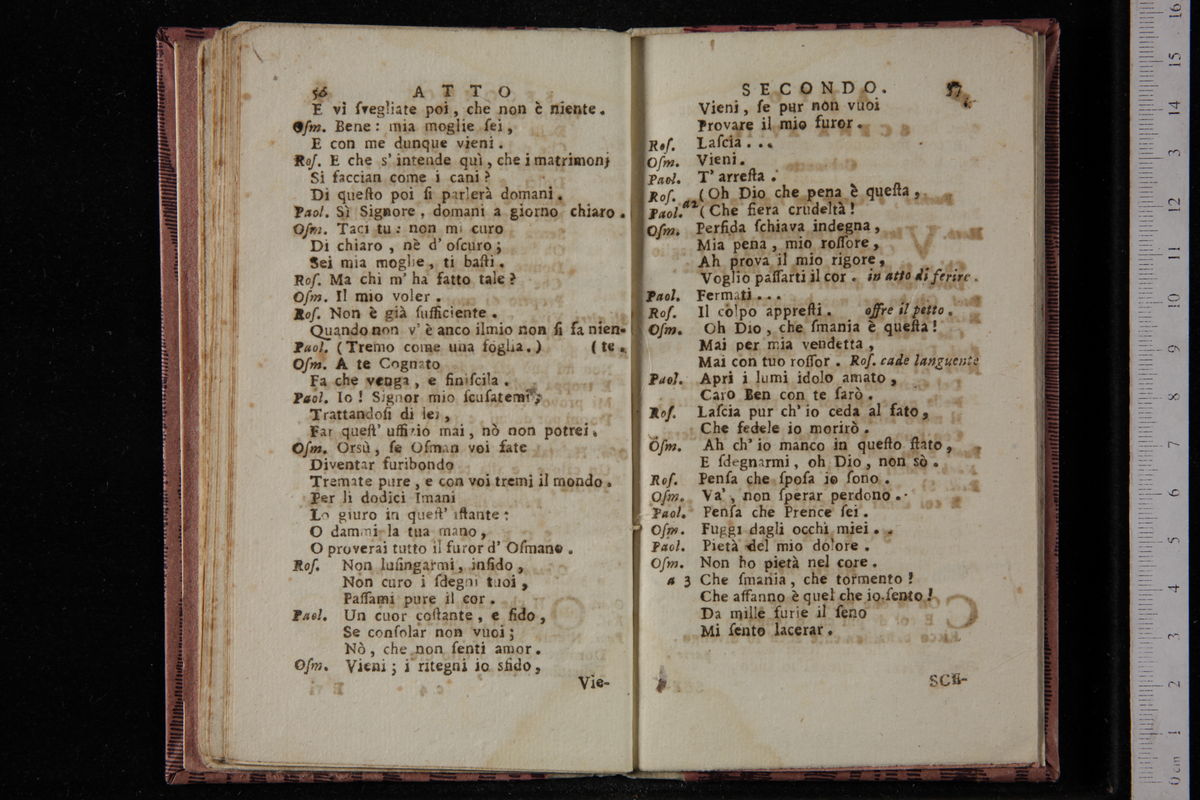 56 ATTO
E vi ſvegliate poi, che non è niente.
Oſm. Bene: mia moglie ſei,
E con me dunque vieni.
Roſ. E che s' intende quì, che i matrimonj
Si faccian come i cani?
Di queſto poi ſi parlerà domani.
Paol. Sì Signore, domani a giorno chiaro.
Oſm. Taci tu: non mi curo
Di chiaro, nè d' oſcuro;
Sei mia moglie, ti baſti.
Roſ. Ma chi m' ha fatto tale?
Oſm. Il mio voler.
Roſ. Non è già ſufficiente.
Quando non v' è anco ilmio non ſi fa nien-
Paol. (Tremo come una foglia.) (te.
Oſm. A te Cognato
Fa che venga, e finiſcila.
Paol. Io! Signor mio ſcuſatemi;
Trattandoſi di lei,
Far queſt' uffizio mai, nò non potrei.
Oſm. Orsù, ſe Oſman voi fate
Diventar furibondo
Tremate pure, e con voi tremi il mondo.
Per li dodici Imani
Lo giuro in queſt' iſtante:
O dammi la tua mano,
O proverai tutto il furor d' Oſmano.
Roſ. Non luſingarmi, infido,
Non curo i ſdegni tuoi,
Paſſami pure il cor.
Paol. Un cuor coſtante, e fido,
Se conſolar non vuoi;
Nò, che non ſenti amor.
Oſm. Vieni; i ritegni io sfido,
Vie-
SECONDO. 57
Vieni, ſe pur non vuoi
Provare il mio furor.
Roſ. Laſcia...
Oſm. Vieni.
Paol. T' arreſta.
Roſ. (Oh Dio che pena è queſta,
Paol. a2 (Che fiera crudeltà!
Oſm. Perfida ſchiava indegna,
Mia pena, mio roſſore,
Ah prova il mio rigore,
Voglio paſſarti il cor. in atto di ferire.
Paol. Fermati...
Roſ. Il colpo appreſti. offre il petto.
Oſm. Oh Dio, che ſmania è queſta!
Mai per mia vendetta,
Mai con tuo roſſor. Roſ. cade languente
Paol. Apri i lumi idolo amato,
Caro Ben con te ſarò.
Roſ. Laſcia pur ch' io ceda al fato,
Che fedele io morirò.
Oſm. Ah ch' io manco in queſto ſtato,
E ſdegnarmi, oh Dio, non sò.
Roſ. Penſa che ſpoſa io ſono.
Oſm. Va', non ſperar perdono.
Paol. Penſa che Prence ſei.
Oſm. Fuggi dagli occhi miei..
Paol. Pietà del mio dolore.
Oſm. Non ho pietà nel core.
a 3 Che ſmania, che tormento!
Che affanno è quel che io ſento!
Da mille furie il ſeno
Mi ſento lacerar.
SCE-